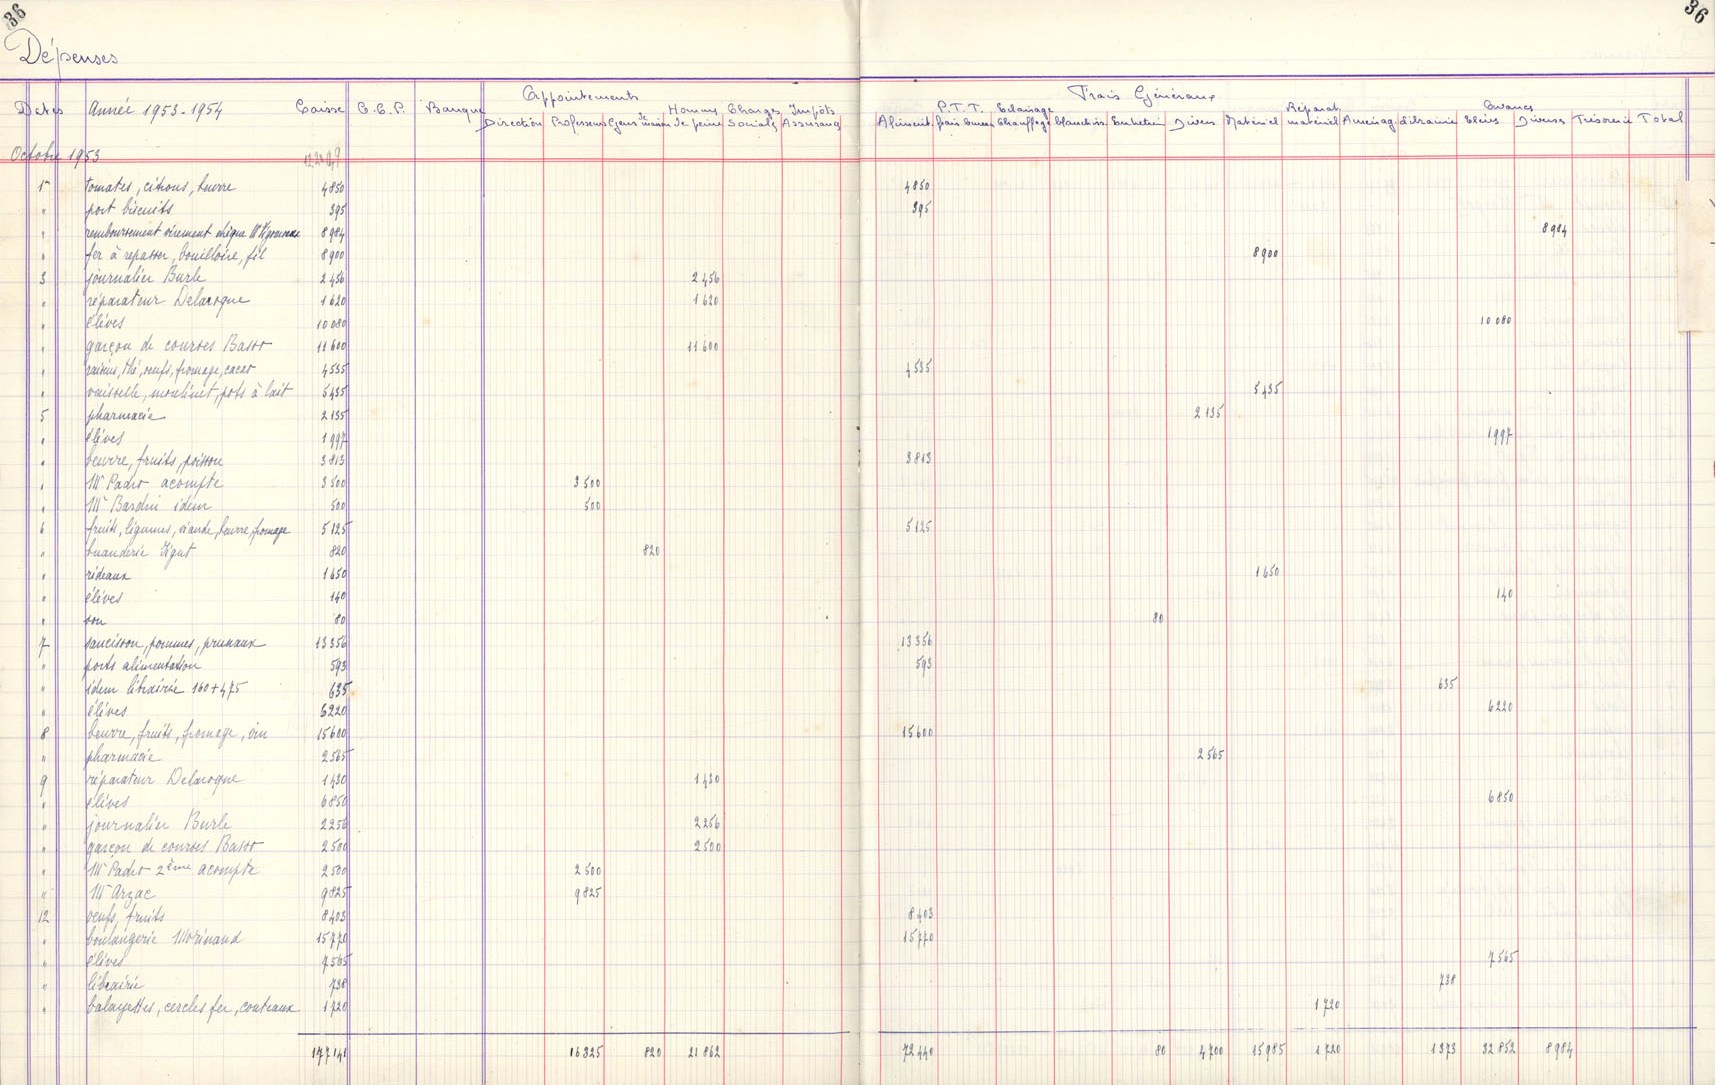 36 36
Dépenses
Appointements Frais Généraux
Dates Année 1953-1954 Caisse C.C.P. Banque Direction Professeurs Gens de maison Hommes de peine Charges Sociales Impôts Assurances Aliment. P.T.T. frais bureau Eclairage Chauffage blanchiss. Entretien Divers Matériel Réparat. matériel Aménag. librairie Avances Elèves Diverses Trésorerie Total
Octobre 1953
1er tomates, citrons, beurre 4850 4850
" port biscuits 395 395
" remboursement virement chèque 8984 8984
" fer à repasser, bouilloire, fil 8900 8900
3 journalier Burle 2456 2456
" réparateur Delarogue 1620 1620
" élèves 10080 10 080
" garçon de courses Basso 11600 11600
" raisins, thé, oeufs, fromage, cacao 4535 4535
" vaisselle, moulinet, pots à lait 5435 5435
5 pharmacie 2135 2135
" élèves 1997 1997
" beurre, fruits, poisson 3813 3813
" Mr Padro acompte 3500 3500
" Mr Bardin idem 500 500
6 fruits, légumes, viande, beurre, fromage 5125 5125
" buanderie 820 820
" rideaux 1650 1650
" élèves 140 140
" son 80 80
7 saucisson, pommes, pruneaux 13356 13356
" ports alimentation 593 593
" idem librairie 160+475 635 635
" élèves 6220 6220
8 beurre, fruits, fromage, vin 15600 15600
" pharmacie 2565 2565
9 réparateur Delarogue 1430 1430
" élèves 6850 6850
" journalier Burle 2256 2256
" garçon de courses Basso 2500 2500
" Mr Padro 2ème acompte 2500 2500
" Mr Arzac 9825 9825
12 oeufs, fruits 8403 8403
" boulangerie Morinaud 15770 15770
" élèves 7565 7565
" librairie 738 738
" balayettes, cercles fer, couteaux 1720 1720
177141 16325 820 21862 72440 80 4700 15985 1720 1373 32852 8984